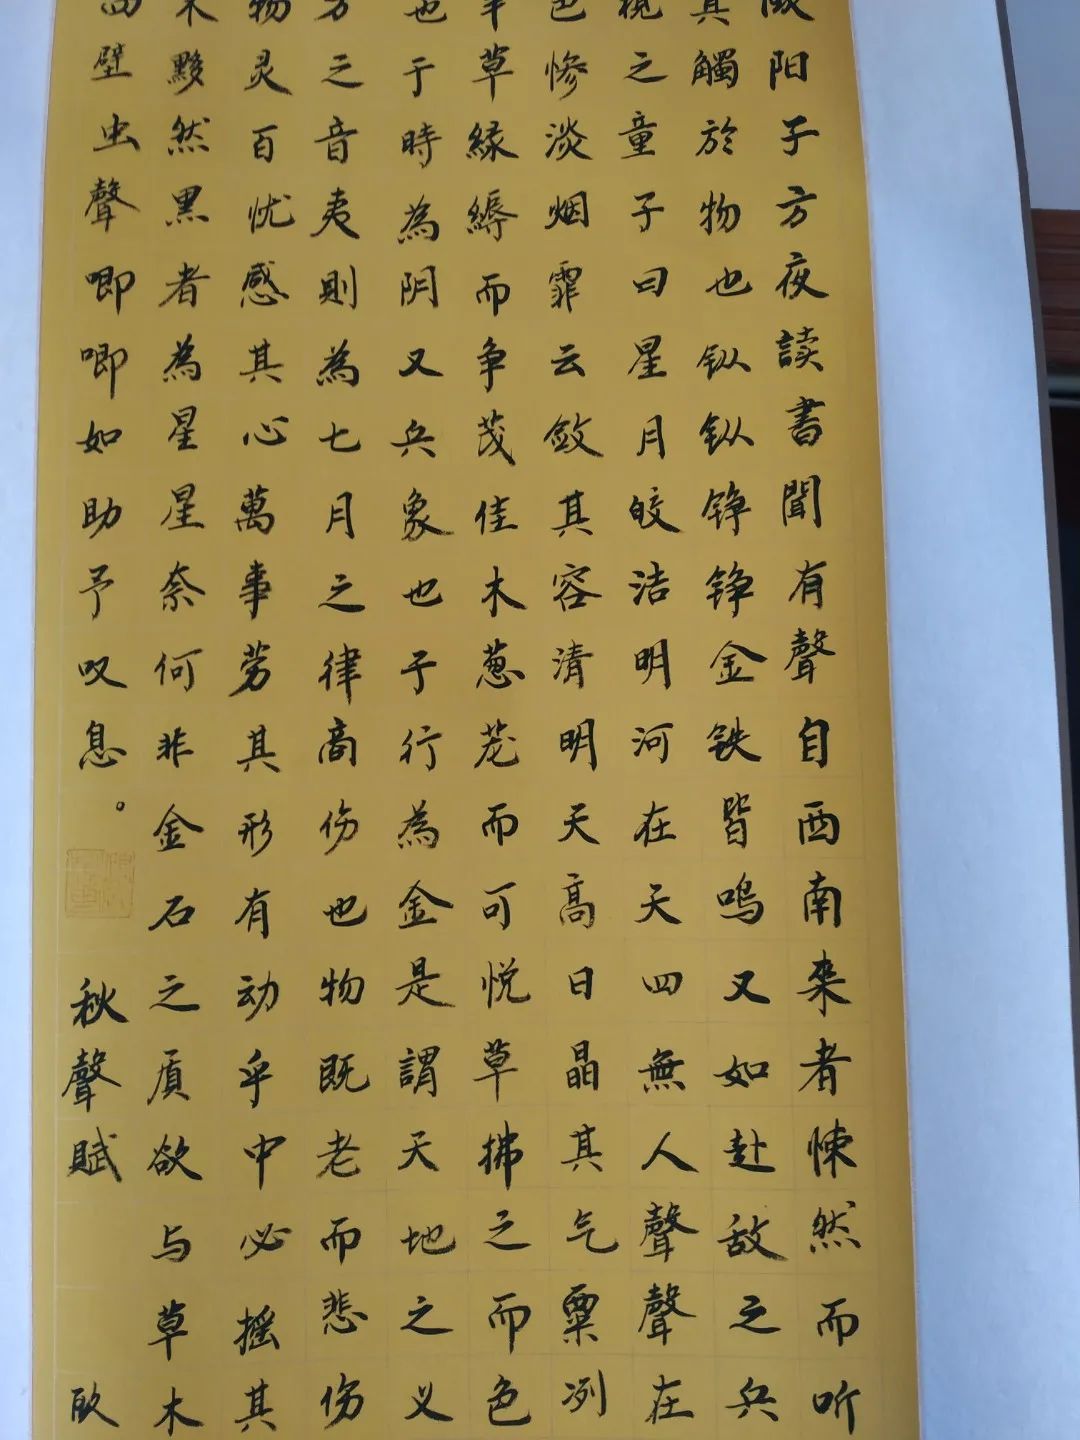 阳子方夜读書聞有聲自西南来者悚然而听
其觸於物也鈥鈥铮铮金铁皆鸣又如赴敌之兵
視之童子曰星月皎洁明河在天四無人聲聲在
色惨淡烟霏云敛其容清明天高日晶其气栗冽
草緑縟而争茂佳木葱茏而可悦草拂之而色
也于時為阴又兵象也于行為金是謂天地之义
方之音夷則為七月之律商伤也物既老而悲伤
物灵百忧感其心萬事劳其形有动乎中必摇其
木黟然黒者為星星奈何非金石之质欲与草木
四壁虫聲唧唧如助予叹息。
秋聲賦